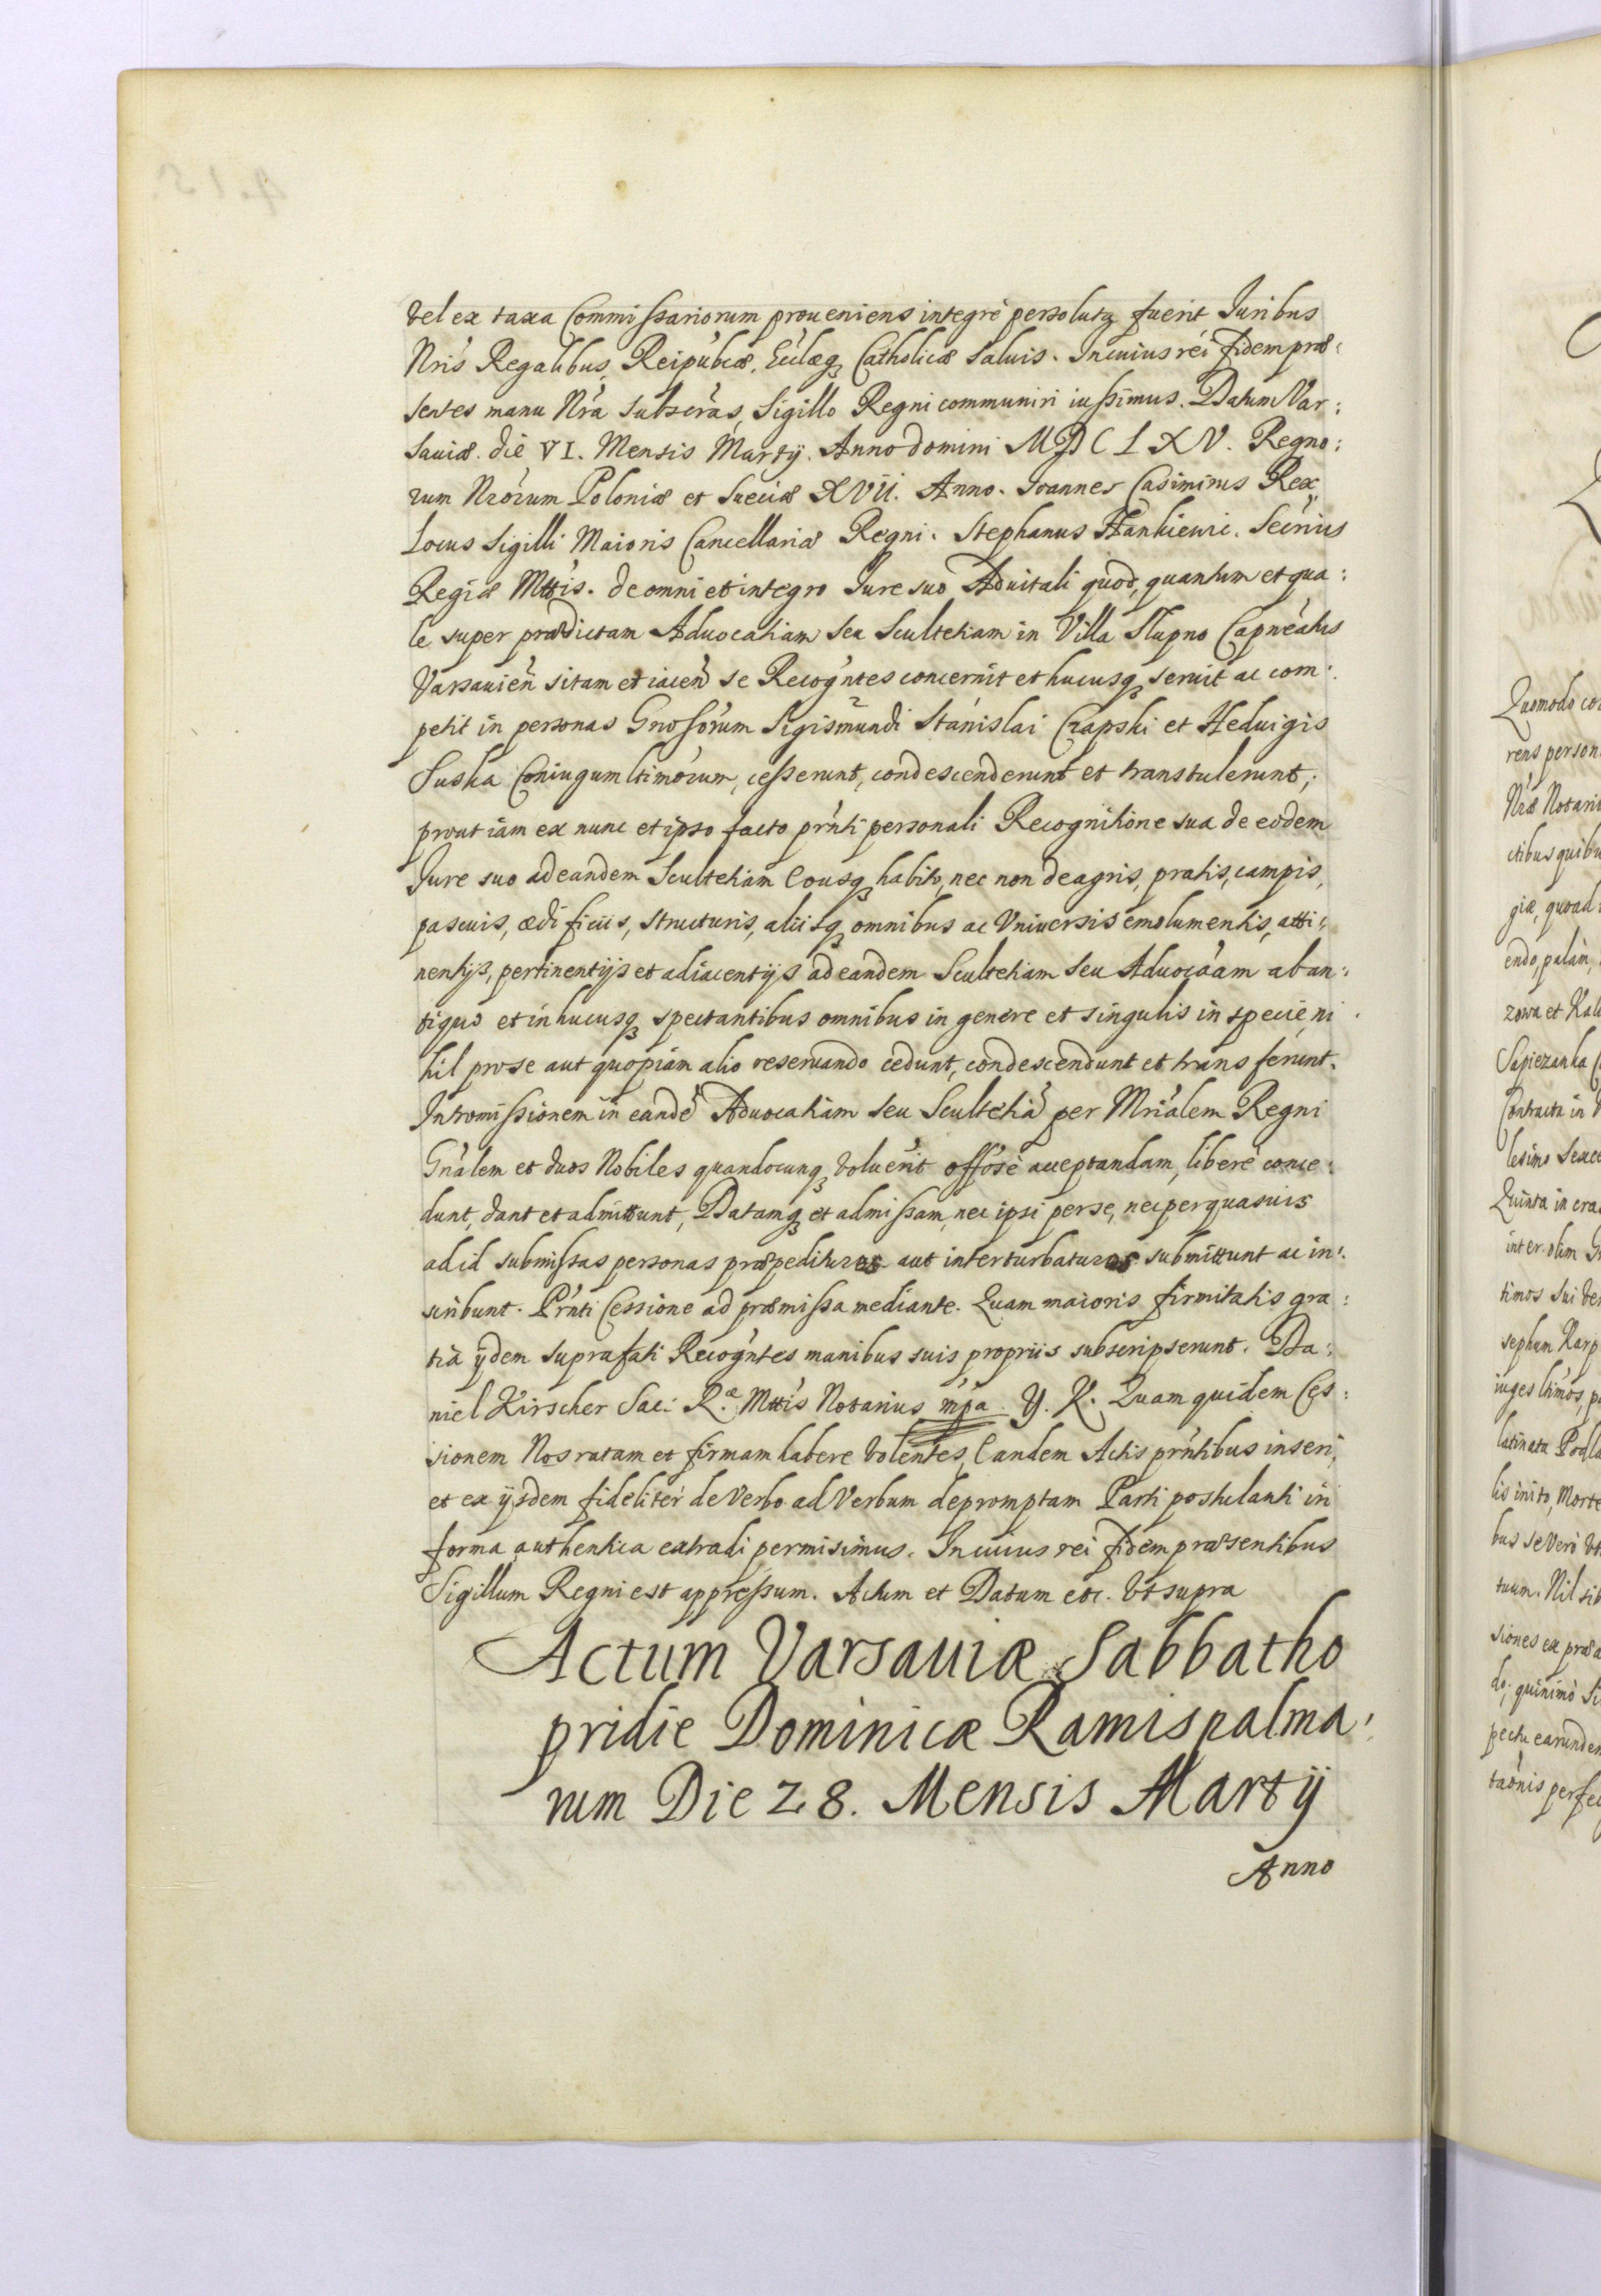 vel ex taxa Commissariorum proueniens integrè persoluta fuerit Juribus
Nris Regalibus, Reipubcæ, Ecclæq Catholicæ saluis. In cuius rei fidem præ:
sentes manu Nra subscras, Sigillo Regni communiri iussimus. Datum Var:
sauiæ. die VI. Mensis Martij. Anno domini MDCLXV. Regno:
rum Nrorum Poloniæ et Sueciæ XVII. Anno. Joannes Casimirus Rex
Locus Sigilli Maioris Cancellariæ Regni. Stephanus Hankiewic. Secrius
Regiæ Mttis. de omni et integro Jure suo Aduitali quod, quantum et qua:
le super prædictam Aduocatiam seu Scultetiam in Villa Słupno Capneatus
Varsauien sitam et iacen se Recogntes concernit et hucusq seruit ac com:
petit in personas Gnosorum Sigismundi Stanislai Czapski et Heduigis
Suska Coniugum ltimorum, cesserunt, condescenderunt et transtulerunt;
prout iam ex nunc et ipso facto prnti personali Recognitione sua de eodem
Jure suo ad eandem Scultetiam eousq habito, nec non de agris, pratis, campis,
pascuis, ædificiis, structuris, aliisq omnibus ac Vniuersis emolumentis, atti:
nentijs, pertinentijs et adiacentijs ad eandem Scultetiam seu Aduocaam ab an:
tiquo et in hucusq spectantibus omnibus in genere et singulis in specie, ni
hil pro se aut quopiam alio reseruando cedunt, condescendunt et transferunt.
Intromissionem in eande Aduocatiam seu Scultetia per Mrialem Regni
Gnalem et duos Nobiles quandocunq voluerit offose acceptandam, liberè conce:
dunt, dant et admittunt, Datamq et admissam, nec ipsi per se, nec per quasuis
ad id submissas personas præpedituros aut interturbaturos submittunt ac in:
scribunt. Prnti Cessione ad præmissa mediante. Quam maioris firmitatis gra:
tia ijdem suprafati Recogntes manibus suis propriis subscripserunt. Da:
niel Kirscher Sac: R.æ Mttis Notarius mpa. Y. K. Quam quidem Ces:
sionem Nos ratam et firmam habere volentes, Eandem Actis prntibus inseri,
et ex ijsdem fideliter de Verbo ad Verbum depromptam Parti postulanti in
forma authentica extradi permisimus. In cuius rei fidem præsentibus
Sigillum Regni est appressum. Actum et Datum etc. Vt supra
Actum Varsauiæ Sabbatho
pridie Dominicæ Ramispalma:
rum Die 28. Mensis Martij
Anno
Quomodo
rens person
Nræ Notari
ctibus quibu
giæ, quoad
endo, palàm,
zowa et
Sapiezanka
Contracta in
Quinta in
inter olim
timos sui
sephum Karp
iuges ltimos,
latinatu Podla
lis inito, Morte
bus se Verò
tuum. Nil sib
siones ex præ
do; quinimò
pectu earunde
taonis perfe